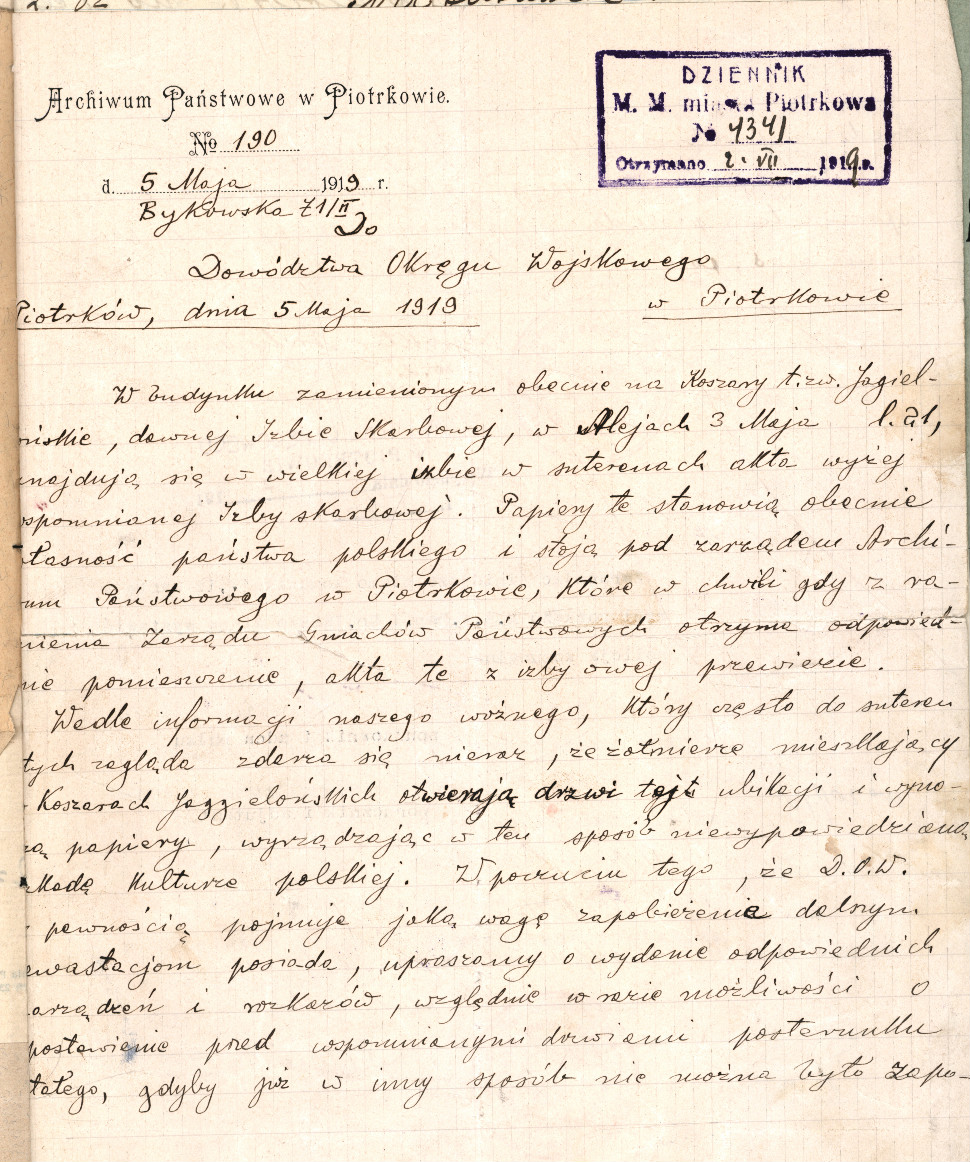 Archiwum Państwowe w Piotrkowie.
№ 190
d. 5 Maja 1919 r.
Bykowska 71/II
Do
DZIENNIK
M. M. miasta Piotrkowa
№ 4341
Otrzymano 2. VII 1919 r.
Dowództwa Okręgu Wojskowego
w Piotrkowie
Piotrków, dnia 5 Maja 1919
W budynku zamienionym obecnie na Koszary t.zw. Jagiel-
ońskie, dawnej Izbie Skarbowej, w Alejach 3 Maja l. 21,
najdują się w wielkiej izbie w suterenach akta wyżej
spomnianej Izby skarbowej. Papiery te stanowią obecnie
łasność państwa polskiego i stoją pod zarządem Archi-
um Państwowego w Piotrkowie, które w chwili gdy z ra-
mienia Zarządu Gmachów Państwowych otrzyma odpowied-
nie pomieszczenie, akta te z izby owej przewiezie.
Wedle informacji naszego woźnego, który często do suteren
tych zagląda zdarza się nieraz, że żołnierze mieszkający
Koszarach Jaggielońskich otwierają drzwi tejże ubikacji i wyno-
zą papiery, wyrządzając w ten sposób niewypowiedzianą
zkodę kulturze polskiej. W poczuciu tego, że D.O.W.
pewnością pojmuje jaką wagę zapobieżenie dalszym
ewastacjom posiada, upraszamy o wydanie odpowiednich
arządzeń i rozkazów, względnie w razie możliwości o
postawienie przed wspomnianymi drzwiami posterunku
tałego, gdyby już w inny sposób nie można było zapo-